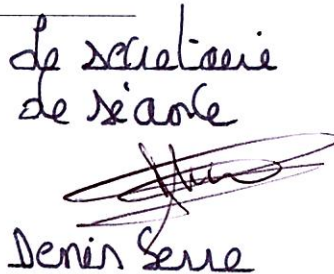 Le secrétaire
de séance
Denis Serre